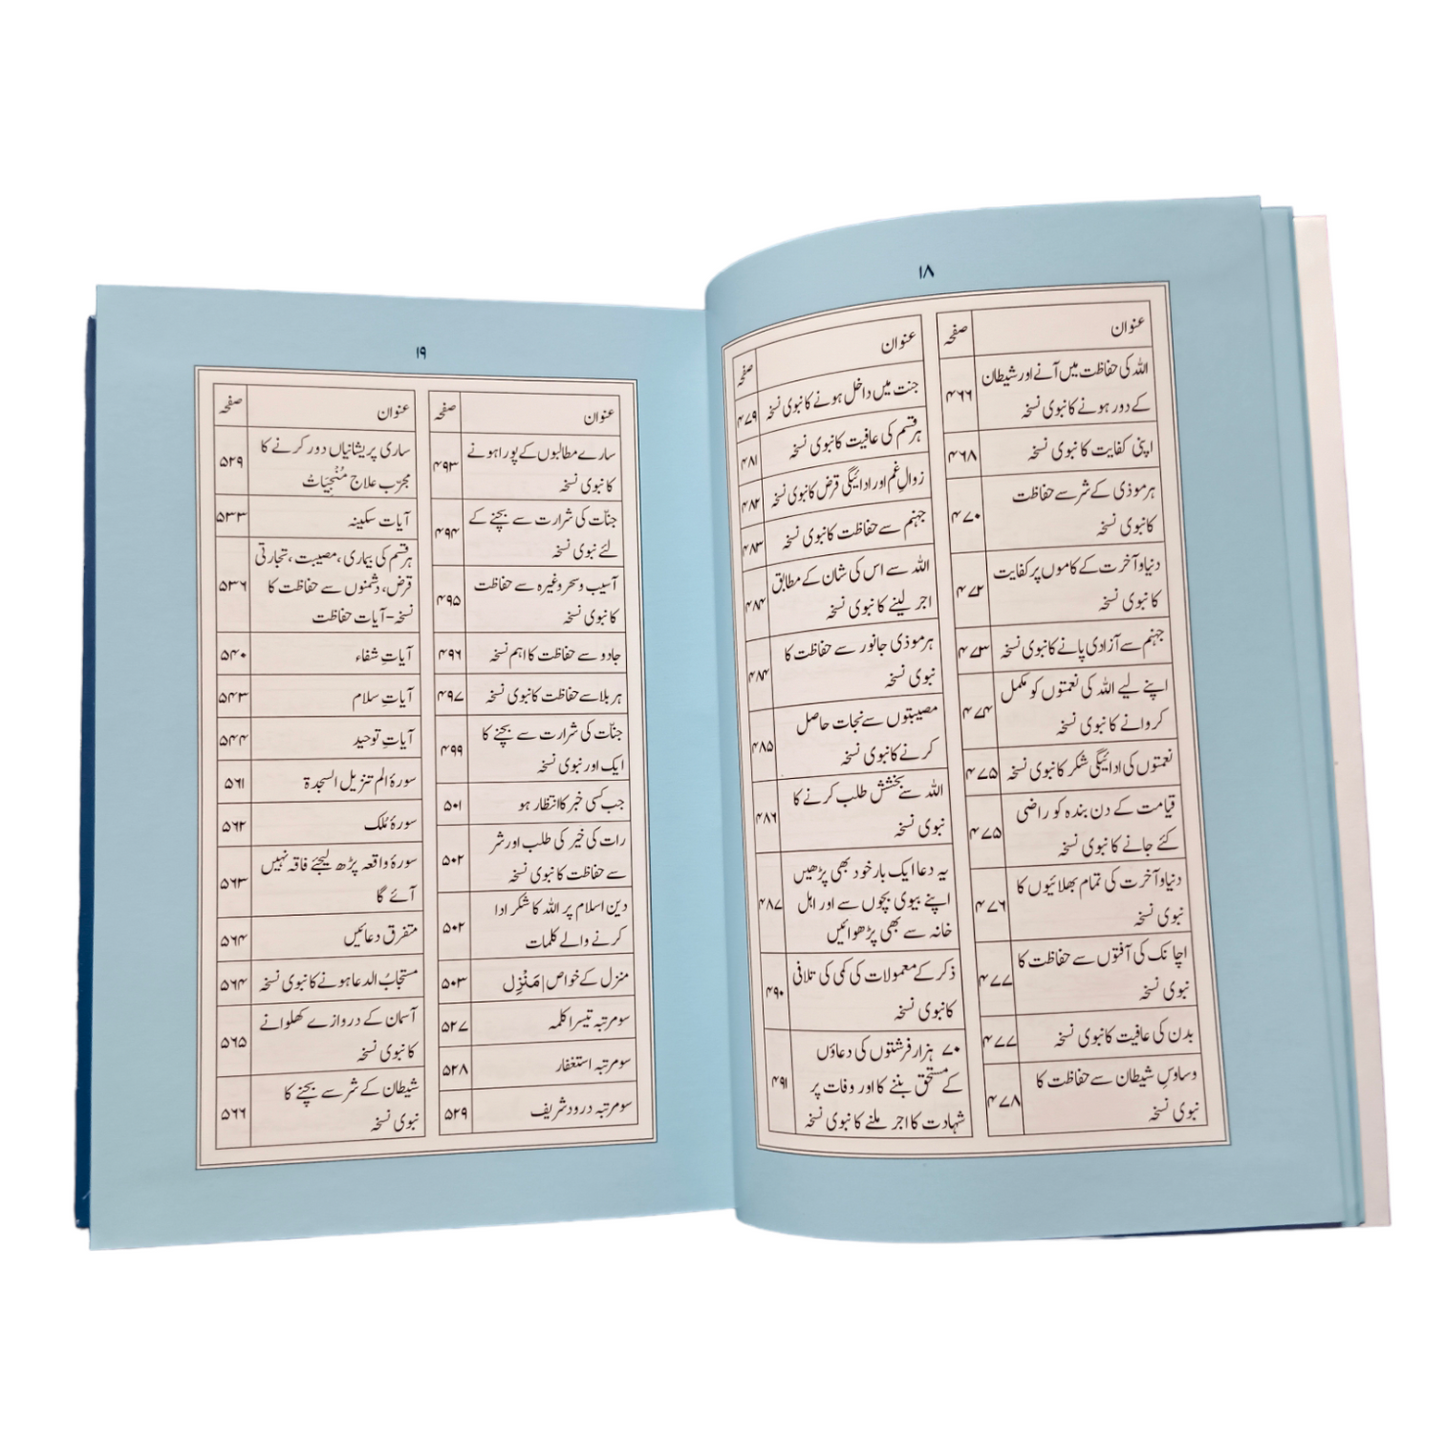 ۱۸
عنوان صفحہ
اللہ کی حفاظت میں آنے اور شیطان
کے دور ہونے کا نبوی نسخہ ۴۶۶
اپنی کفایت کا نبوی نسخہ ۴۶۸
ہر موذی کے شر سے حفاظت
کا نبوی نسخہ ۴۷۰
دنیا و آخرت کے کاموں پر کفایت
کا نبوی نسخہ ۴۷۲
جہنم سے آزادی پانے کا نبوی نسخہ ۴۷۳
اپنے لیے اللہ کی نعمتوں کو مکمل
کروانے کا نبوی نسخہ ۴۷۴
نعمتوں کی ادائیگی شکر کا نبوی نسخہ ۴۷۵
قیامت کے دن بندہ کو راضی
کئے جانے کا نبوی نسخہ ۴۷۵
دنیا و آخرت کی تمام بھلائیوں کا
نبوی نسخہ ۴۷۶
اچانک کی آفتوں سے حفاظت کا
نبوی نسخہ ۴۷۷
بدن کی عافیت کا نبوی نسخہ ۴۷۷
وساوسِ شیطان سے حفاظت کا
نبوی نسخہ ۴۷۸
عنوان صفحہ
جنت میں داخل ہونے کا نبوی نسخہ ۴۷۹
ہر قسم کی عافیت کا نبوی نسخہ ۴۸۱
زوالِ غم اور ادائیگی قرض کا نبوی نسخہ ۴۸۲
جہنم سے حفاظت کا نبوی نسخہ ۴۸۳
اللہ سے اس کی شان کے مطابق
اجر لینے کا نبوی نسخہ ۴۸۴
ہر موذی جانور سے حفاظت کا
نبوی نسخہ ۴۸۴
مصیبتوں سے نجات حاصل
کرنے کا نبوی نسخہ ۴۸۵
اللہ سے بخشش طلب کرنے کا
نبوی نسخہ ۴۸۶
یہ دعا ایک بار خود بھی پڑھیں
اپنے بیوی بچوں سے اور اہل
خانہ سے بھی پڑھوائیں ۴۸۷
ذکر کے معمولات کی کمی کی تلافی
کا نبوی نسخہ ۴۹۰
۷۰ ہزار فرشتوں کی دعاؤں
کے مستحق بننے کا اور وفات پر
شہادت کا اجر ملنے کا نبوی نسخہ ۴۹۱
۱۹
عنوان صفحہ
سارے مطالبوں کے پورا ہونے
کا نبوی نسخہ ۴۹۳
جنّات کی شرارت سے بچنے کے
لئے نبوی نسخہ ۴۹۴
آسیب و سحر وغیرہ سے حفاظت
کا نبوی نسخہ ۴۹۵
جادو سے حفاظت کا اہم نسخہ ۴۹۶
ہر بلا سے حفاظت کا نبوی نسخہ ۴۹۷
جنّات کی شرارت سے بچنے کا
ایک اور نبوی نسخہ ۴۹۹
جب کسی خبر کا انتظار ہو ۵۰۱
رات کی خیر کی طلب اور شر
سے حفاظت کا نبوی نسخہ ۵۰۲
دین اسلام پر اللہ کا شکر ادا
کرنے والے کلمات ۵۰۲
منزل کے خواص | مَنْزِل ۵۰۳
سو مرتبہ تیسرا کلمہ ۵۲۷
سو مرتبہ استغفار ۵۲۸
سو مرتبہ درود شریف ۵۲۹
عنوان صفحہ
ساری پریشانیاں دور کرنے کا
مجرّب علاج مُنْجِیَاتْ ۵۲۹
آیات سکینہ ۵۳۳
ہر قسم کی بیماری، مصیبت، تجارتی
قرض، دشمنوں سے حفاظت کا
نسخہ - آیات حفاظت ۵۳۶
آیاتِ شفاء ۵۴۰
آیاتِ سلام ۵۴۳
آیاتِ توحید ۵۴۴
سورۂ الم تنزیل السجدۃ ۵۶۱
سورۂ مُلک ۵۶۲
سورۂ واقعہ پڑھ لیجئے فاقہ نہیں
آئے گا ۵۶۳
متفرق دعائیں ۵۶۴
مستجابُ الدعا ہونے کا نبوی نسخہ ۵۶۴
آسمان کے دروازے کھلوانے
کا نبوی نسخہ ۵۶۵
شیطان کے شر سے بچنے کا
نبوی نسخہ ۵۶۶